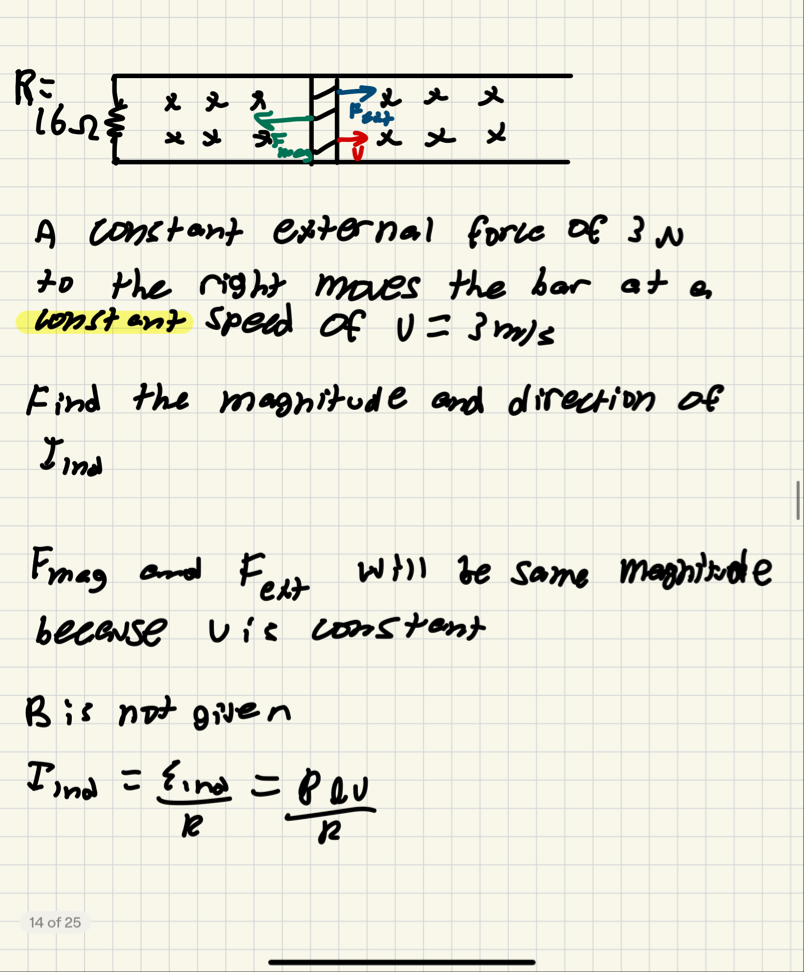 R=
16Ω
x x x x x x
F ext
x x x x x x
F mag
V
A constant external force of 3 N
to the right moves the bar at a
constant speed of v = 3 m/s
Find the magnitude and direction of
I ind
F mag and F ext will be same magnitude
because v is constant
B is not given
I ind = ε ind / R = B l v / R
14 of 25